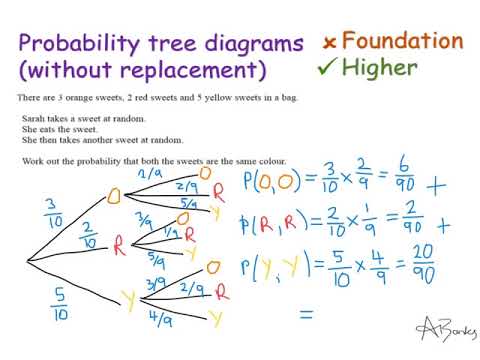 Probability tree diagrams
(without replacement)
× Foundation
✓ Higher
There are 3 orange sweets, 2 red sweets and 5 yellow sweets in a bag.
Sarah takes a sweet at random.
She eats the sweet.
She then takes another sweet at random.
Work out the probability that both the sweets are the same colour.
3/10 O 2/9 O
2/9 R
5/9 Y
2/10 R 3/9 O
1/9 R
5/9 Y
5/10 Y 3/9 O
2/9 R
4/9 Y
P(O,O) = 3/10 × 2/9 = 6/90 +
P(R,R) = 2/10 × 1/9 = 2/90 +
P(Y,Y) = 5/10 × 4/9 = 20/90
=
ABanks